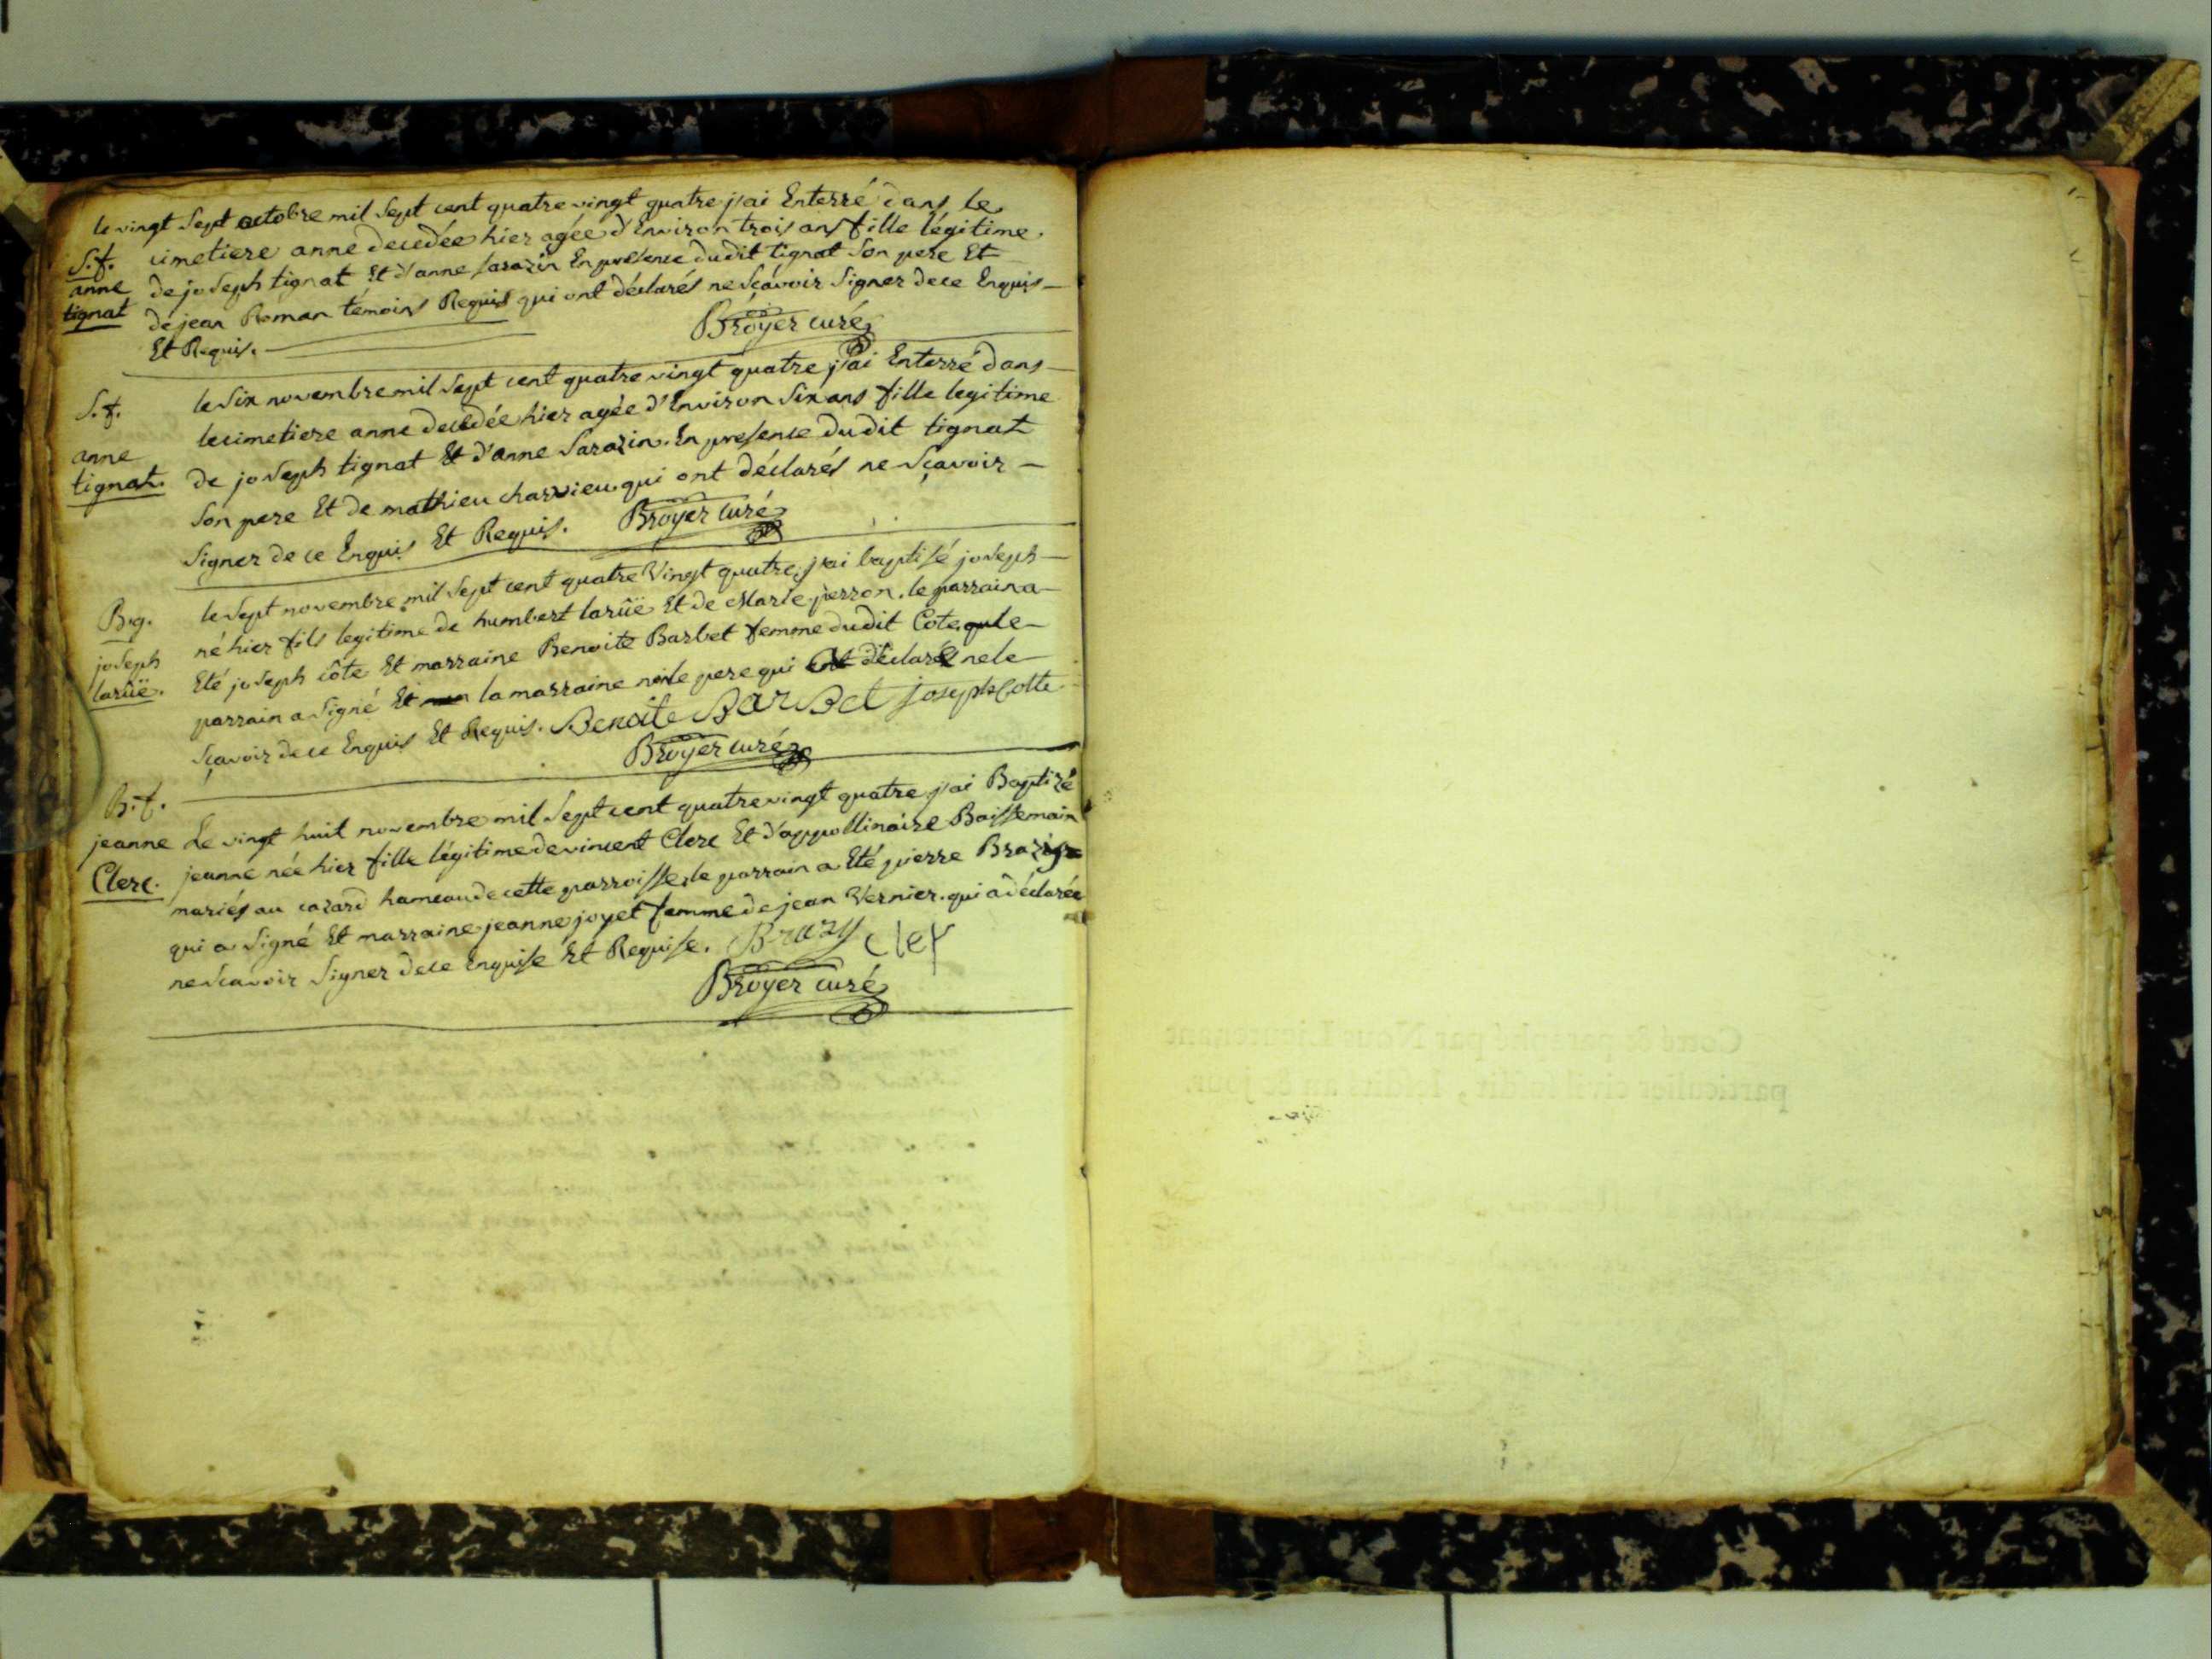 le vingt Sept octobre mil Sept cent quatre vingt quatre j'ai Enterré dans le
S.f. cimetiere anne decedée hier agée d'Environ trois ans fille légitime
anne de joseph tignat Et d'anne sarazin En presence dudit tignat Son pere Et
tignat de jean Roman temoins Requis qui ont déclarés ne Sçavoir Signer de ce Enquis
Et Requis. Broyer curé
le Six novembre mil Sept cent quatre vingt quatre j'ai Enterré dans
S.f. le cimetiere anne decedée hier agée d'Environ Six ans fille legitime
anne de joseph tignat Et d'anne Sarazin. En presence dudit tignat
tignat. Son pere Et de mathieu charvieu qui ont déclarés ne Sçavoir
Signer de ce Enquis Et Requis. Broyer Curé
B.g. le Sept novembre mil Sept cent quatre Vingt quatre, j'ai baptisé joseph
joseph né hier fils legitime de humbert laruë Et de Marie perron. le parrain a
laruë. Eté joseph côte Et marraine Benoite Barbet femme dudit Cote, que le
parrain a Signé Et la marraine non le pere qui déclaré ne le
Sçavoir de ce Enquis Et Requis. Benoite BarBet joseph Cotte
Broyer curé
B.f.
jeanne Le vingt huit novembre mil Sept cent quatre vingt quatre j'ai Baptizé
Clerc. jeanne née hier fille légitime de vincent Clerc Et d'appollinaire Baissemain
mariés au cazard hameau de cette parroisse, le parrain a Eté pierre Brazy
qui a Signé Et marraine jeanne joyet femme de jean Vernier. qui a déclarée
ne Scavoir Signer de ce Enquise Et Requise. Brazy Cler
Broyer curé
Cotté & paraphé par Nous Lieutenant
particulier civil